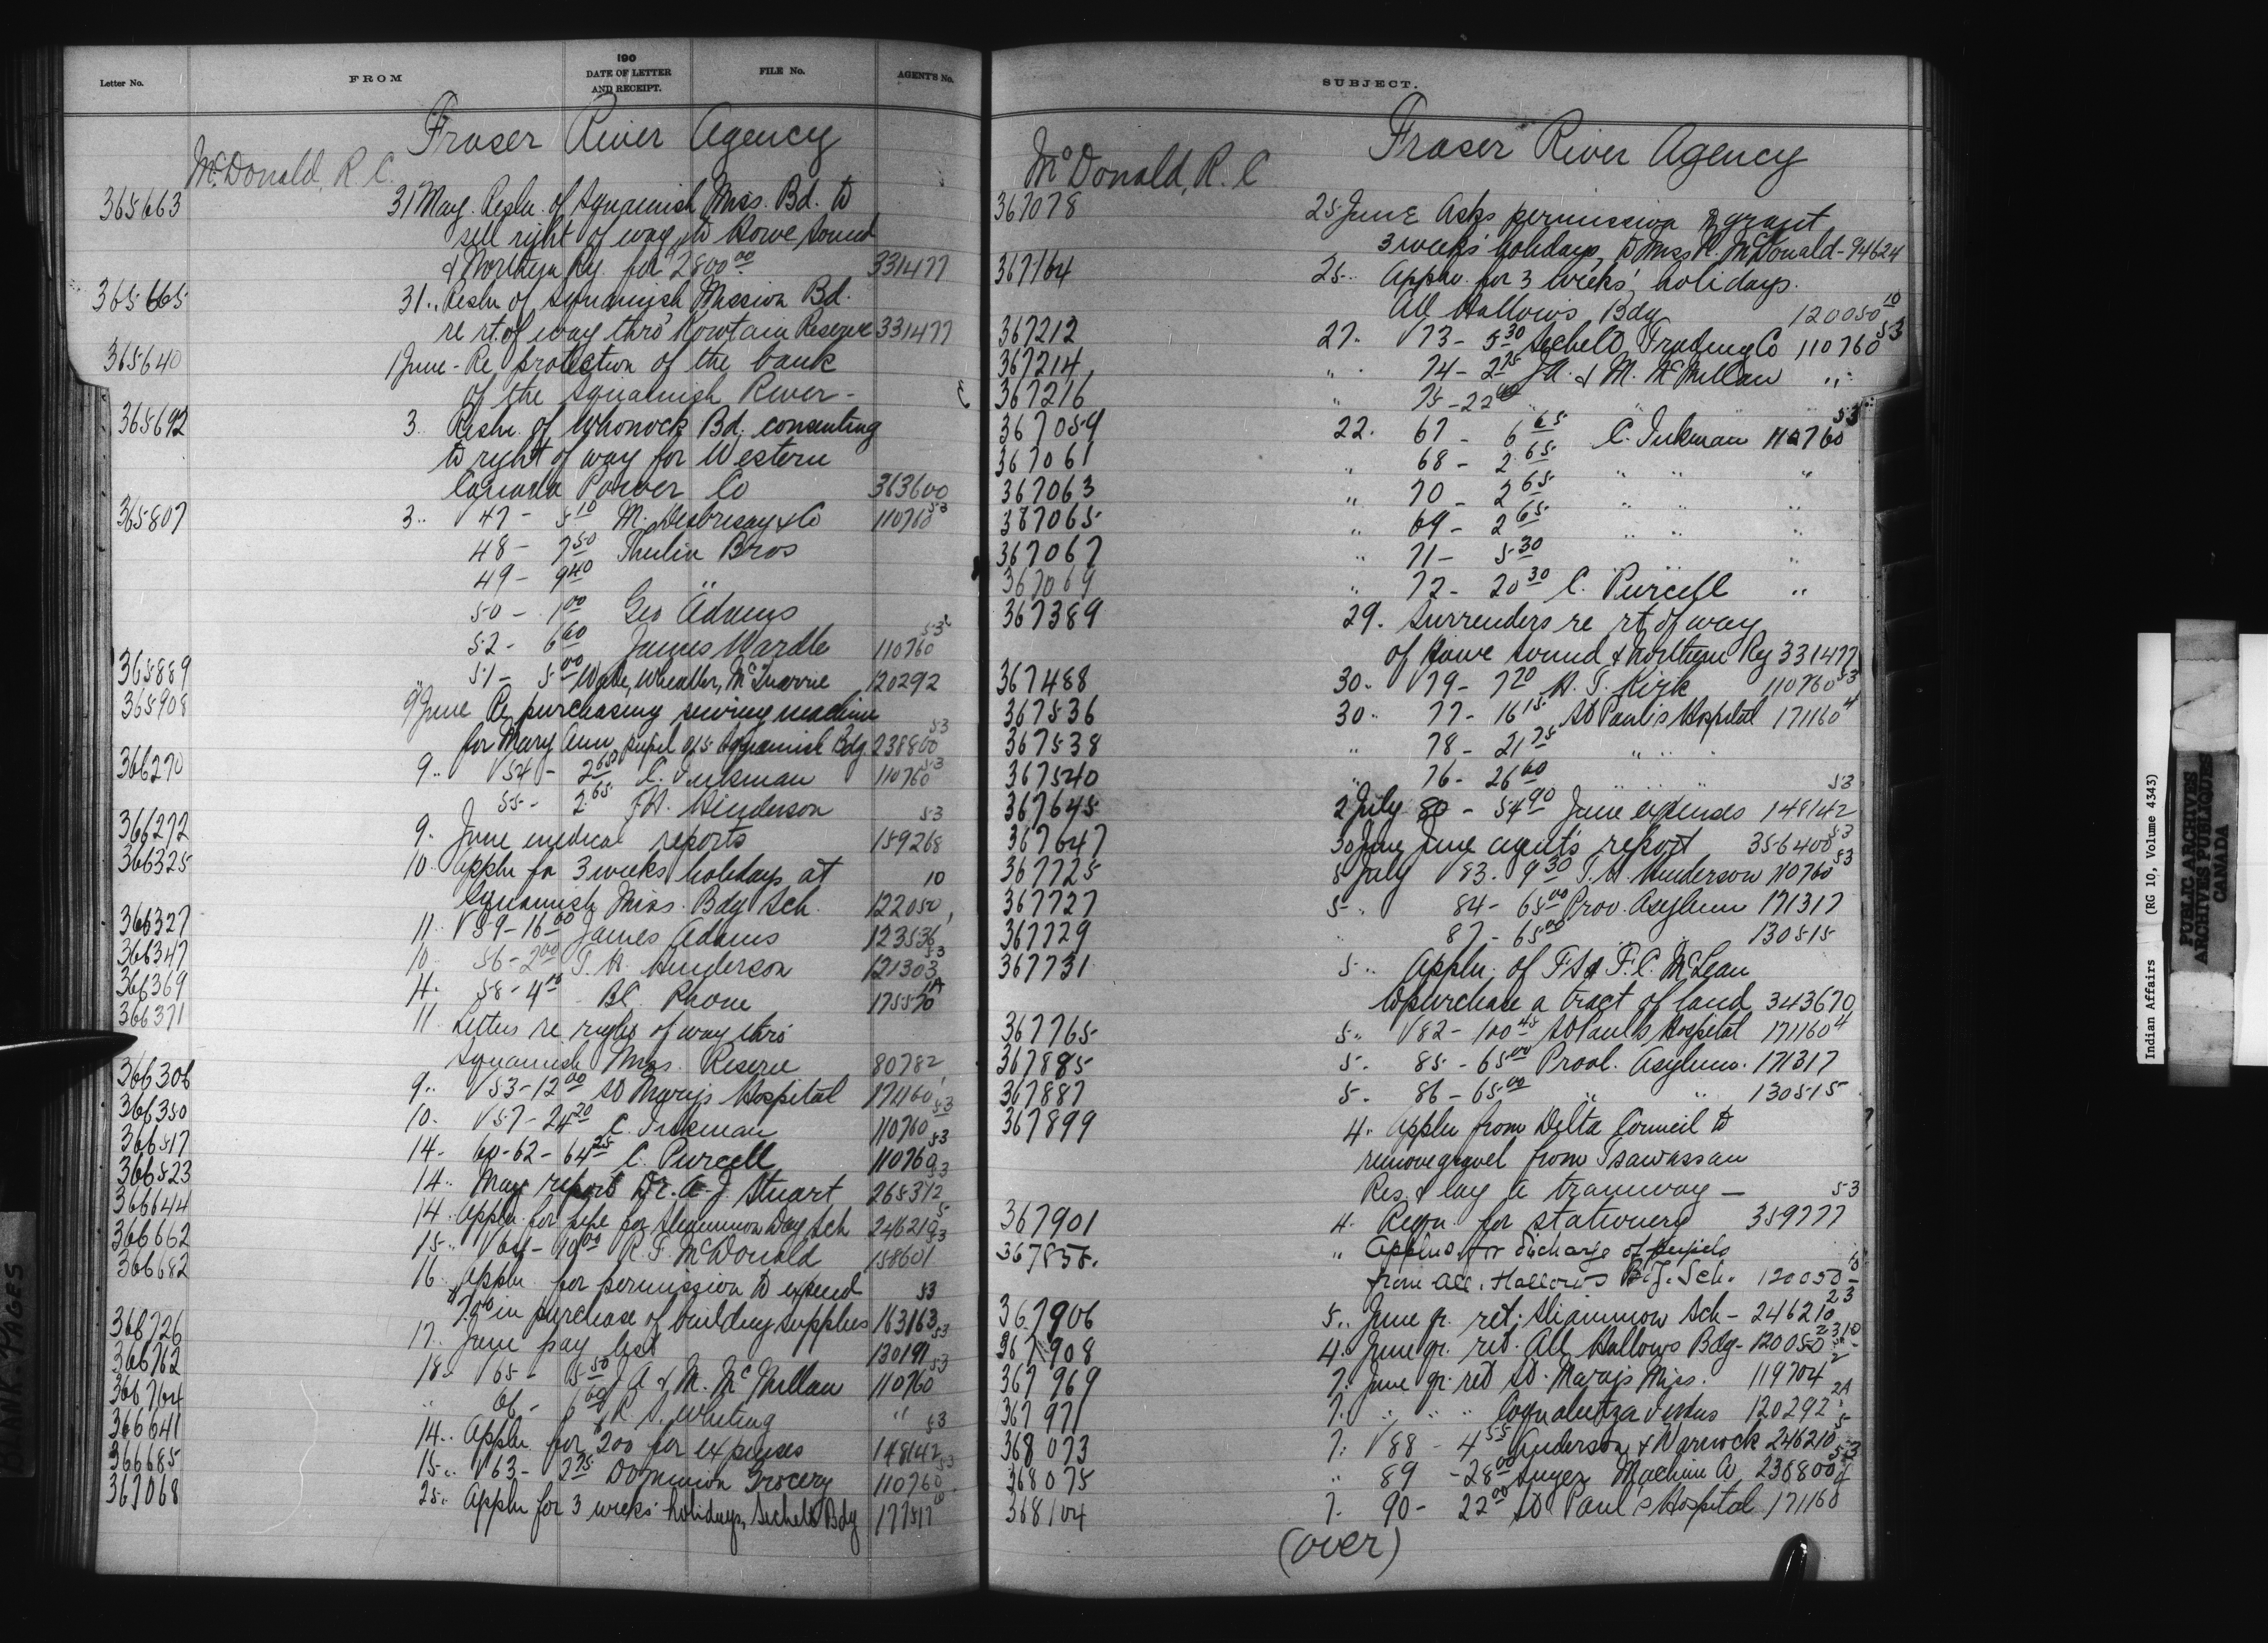 Letter No.
FROM
190
DATE OF LETTER
AND RECEIPT.
FILE No.
AGENT'S No.
Fraser River Agency
McDonald, R. C.
365663 31 May. Resln. of Squamish Miss. Bd. to
sell right of way to Howe Sound
& Northern Ry. for 2800.00 331477
365665 31 .. Resln of Squamish Mission Bd.
re rt. of way thro' Kowtain Reserve 331477
365640 1 June - Re protection of the bank
of the Squamish River -
365692 3. Resln. of Whonock Bd. consenting
to right of way for Western
Canada Power Co 363600
365807 3 .. V 47 - 5 10 M. Desbrisay & Co 110760 53
48 - 7 50 Thulin Bros
49 - 9 40 "
50 - 1 00 Geo Adams
52 - 6 60 James Wardle 110760 53
365889 " 51 - 5 00 Wade, Whealler, McQuarrie 120292
365908 9 June Re purchasing sewing machine
for Mary Ann pupil of Squamish Bdg 238800 53
366270 9 .. V 54 - 2 65 C. Inkman 110760 53
55 - 2 65 T.H. Henderson
366272 9. June medical reports 159268 53
366325 10. Appln for 3 weeks holidays at
Squamish Miss. Bdg Sch. 122050 10
366327 11. V 59 - 16 00 James Adams 123536
366347 10. 56 - 2 00 T. H. Henderson 121303 53
366369 4. 58 - 4 10 B.C. Phone 175570
366371 11 Letters re right of way thro'
Squamish Miss. Reserve 80782
366306 9 .. V 53 - 12 00 St Marys Hospital 17460
366350 10. V 57 - 24 20 C. Inkman 110760 53
366517 14. 60-62 - 64 25 C. Purcell 110760 53
366523 14 .. May report Dr. A. J. Stuart 265372 53
366644 14. Appln. for pipe for Sliammon Day Sch 246210 5
366662 15 .. V 64 - 10 00 R. F. McDonald 158601 53
366682 16 Appln. for permission to expend
in purchase of building supplies 163163 53
366726 17. June pay list 130191 53
366762 18 .. V 65 - 15 50 J A & M. McMillan 110760 53
366764 " 66 - 6 60 R. S. Whiting "
366641 14 .. Appln for $200 for expenses 148142 53
366685 15 .. V 63 - 2 75 Dominion Grocery 110760 53
367068 25 .. Appln for 3 weeks holidays, Sechelt Bdg 177517 10
SUBJECT.
Fraser River Agency
McDonald, R. C
367078 25 June Asks permission to grant
3 weeks' holidays to Miss R. McDonald - 94624
367164 25 .. Appln. for 3 weeks' holidays.
All Hallows Bdg 120050 10
367212 27. V 73 - 5 30 Sechelt Trading Co 110760 53
367214 " 74 - 2 75 J A. & M. McMillan "
367216 " 75 - 22 "
367059 22. 67 - 6 65 C. Inkman 110760 53
367061 " 68 - 2 65 " " "
367063 " 70 - 2 65 " " "
367065 " 69 - 2 65 " " "
367067 " 71 - 5 30 " " "
367069 " 72 - 20 30 C. Purcell "
367389 29. Surrenders re rt. of way
of Howe Sound & Northern Ry 331477
367488 30. V 79 - 7 20 H. T. Kirk 110760 53
367536 30 .. 77 - 16 15 St Paul's Hospital 171160 4
367538 " 78 - 21 75 " "
367540 " 76 - 26 60 " "
367645 2 July 80 - 54 90 June expenses 148142 53
367647 30 June June agents report 356400 53
367725 5 July V 83. 9 30 T. H. Henderson 110760 53
367727 5 .. 84 - 65 00 Prov. Asylum 171317
367729 " 87 - 65 00 " " 130515
367731 5 .. Appln. of F.S & F.C. McLean
to purchase a tract of land 343670
367765 5 .. V 82 - 100 45 St Pauls Hospital 171160 4
367885 5 .. 85 - 65 00 Provl. Asylum. 171317
367887 5 .. 86 - 65 00 " " 130515
367899 4 .. Appln from Delta Council to
remove gravel from Tsawassan
Res. & lay a tramway -
367901 4. Reqn. for stationery 359777 53
367858. " Applns. for discharge of pupils
from All. Hallows B'd'g. Sch. 120050 10
367906 5 .. June qr. ret. Sliammon Sch - 246210 23
367908 4 .. June qr. ret. All Hallows Bdg - 120050
367969 7. June qr. ret St. Marys Miss. 119704 2
367971 7. " " " Coqualeetza Indus 120292 2A
368073 7. V 88 - 4 55 Anderson & Warnock 246210 5
368075 " 89 - 28 00 Singer Machine Co 238800 53
368104 7. 90 - 22 00 St Paul's Hospital 171160 4
(over)
BLANK PAGES
Indian Affairs (RG 10, Volume 4343)
PUBLIC ARCHIVES
ARCHIVES PUBLIQUES
CANADA